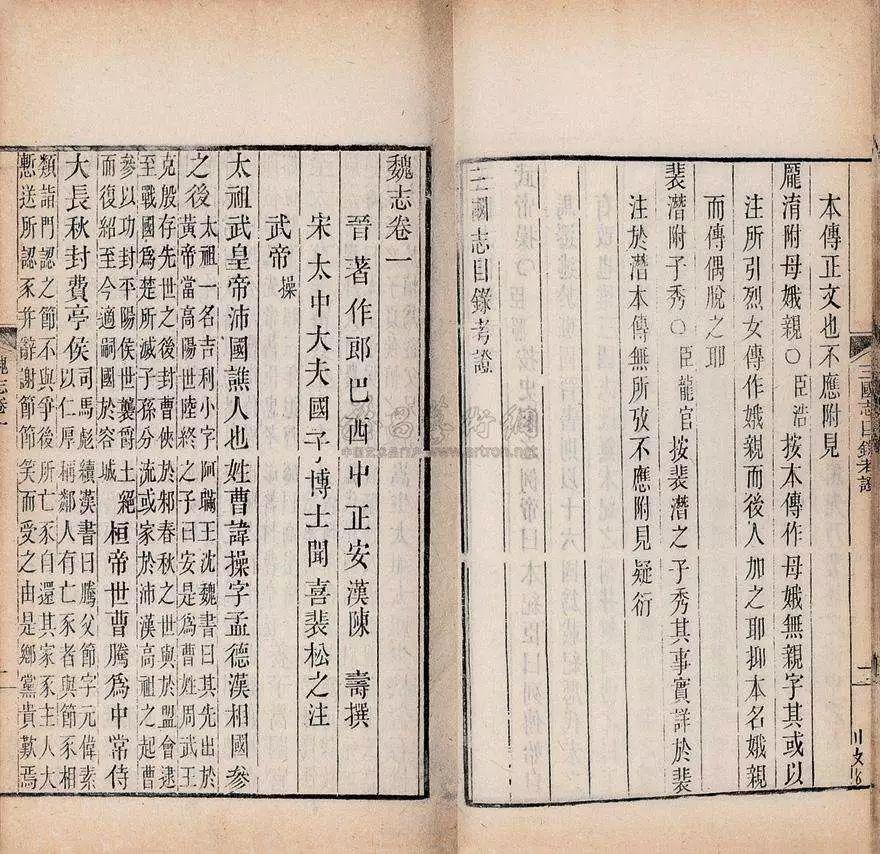 本傳正文也不應附見
龎淯附母娥親〇臣浩按本傳作母娥無親字其或以
注所引烈女傳作娥親而後人加之耶抑本名娥親
而傳偶脫之耶
裴潛附子秀〇臣龍官按裴潛之子秀其事實詳於裴
注於潛本傳無所攷不應附見疑衍
三國志目錄考證
三國志目錄考證
二
魏志卷一
晉著作郎巴西中正安漢陳壽撰
宋太中大夫國子博士聞喜裴松之注
武帝操
太祖武皇帝沛國譙人也姓曹諱操字孟德漢相國參
之後太祖一名吉利小字阿瞞王沈魏書曰其先出於
黃帝當高陽世陸終之子曰安是爲曹姓周武王
克殷存先世之後封曹俠於邾春秋之世與於盟會逮
至戰國爲楚所滅子孫分流或家於沛漢高祖之起曹
參以功封平陽侯世襲爵土絕
而復紹至今適嗣國於容城
桓帝世曹騰爲中常侍
大長秋封費亭侯司馬彪續漢書曰騰父節字元偉素
以仁厚稱鄰人有亡豕者與節豕相
類詣門認之節不與爭後所亡豕自還其家豕主人大
慙送所認豕幷辭謝節節笑而受之由是鄉黨貴歎焉
魏志卷一
一
www.artron.net